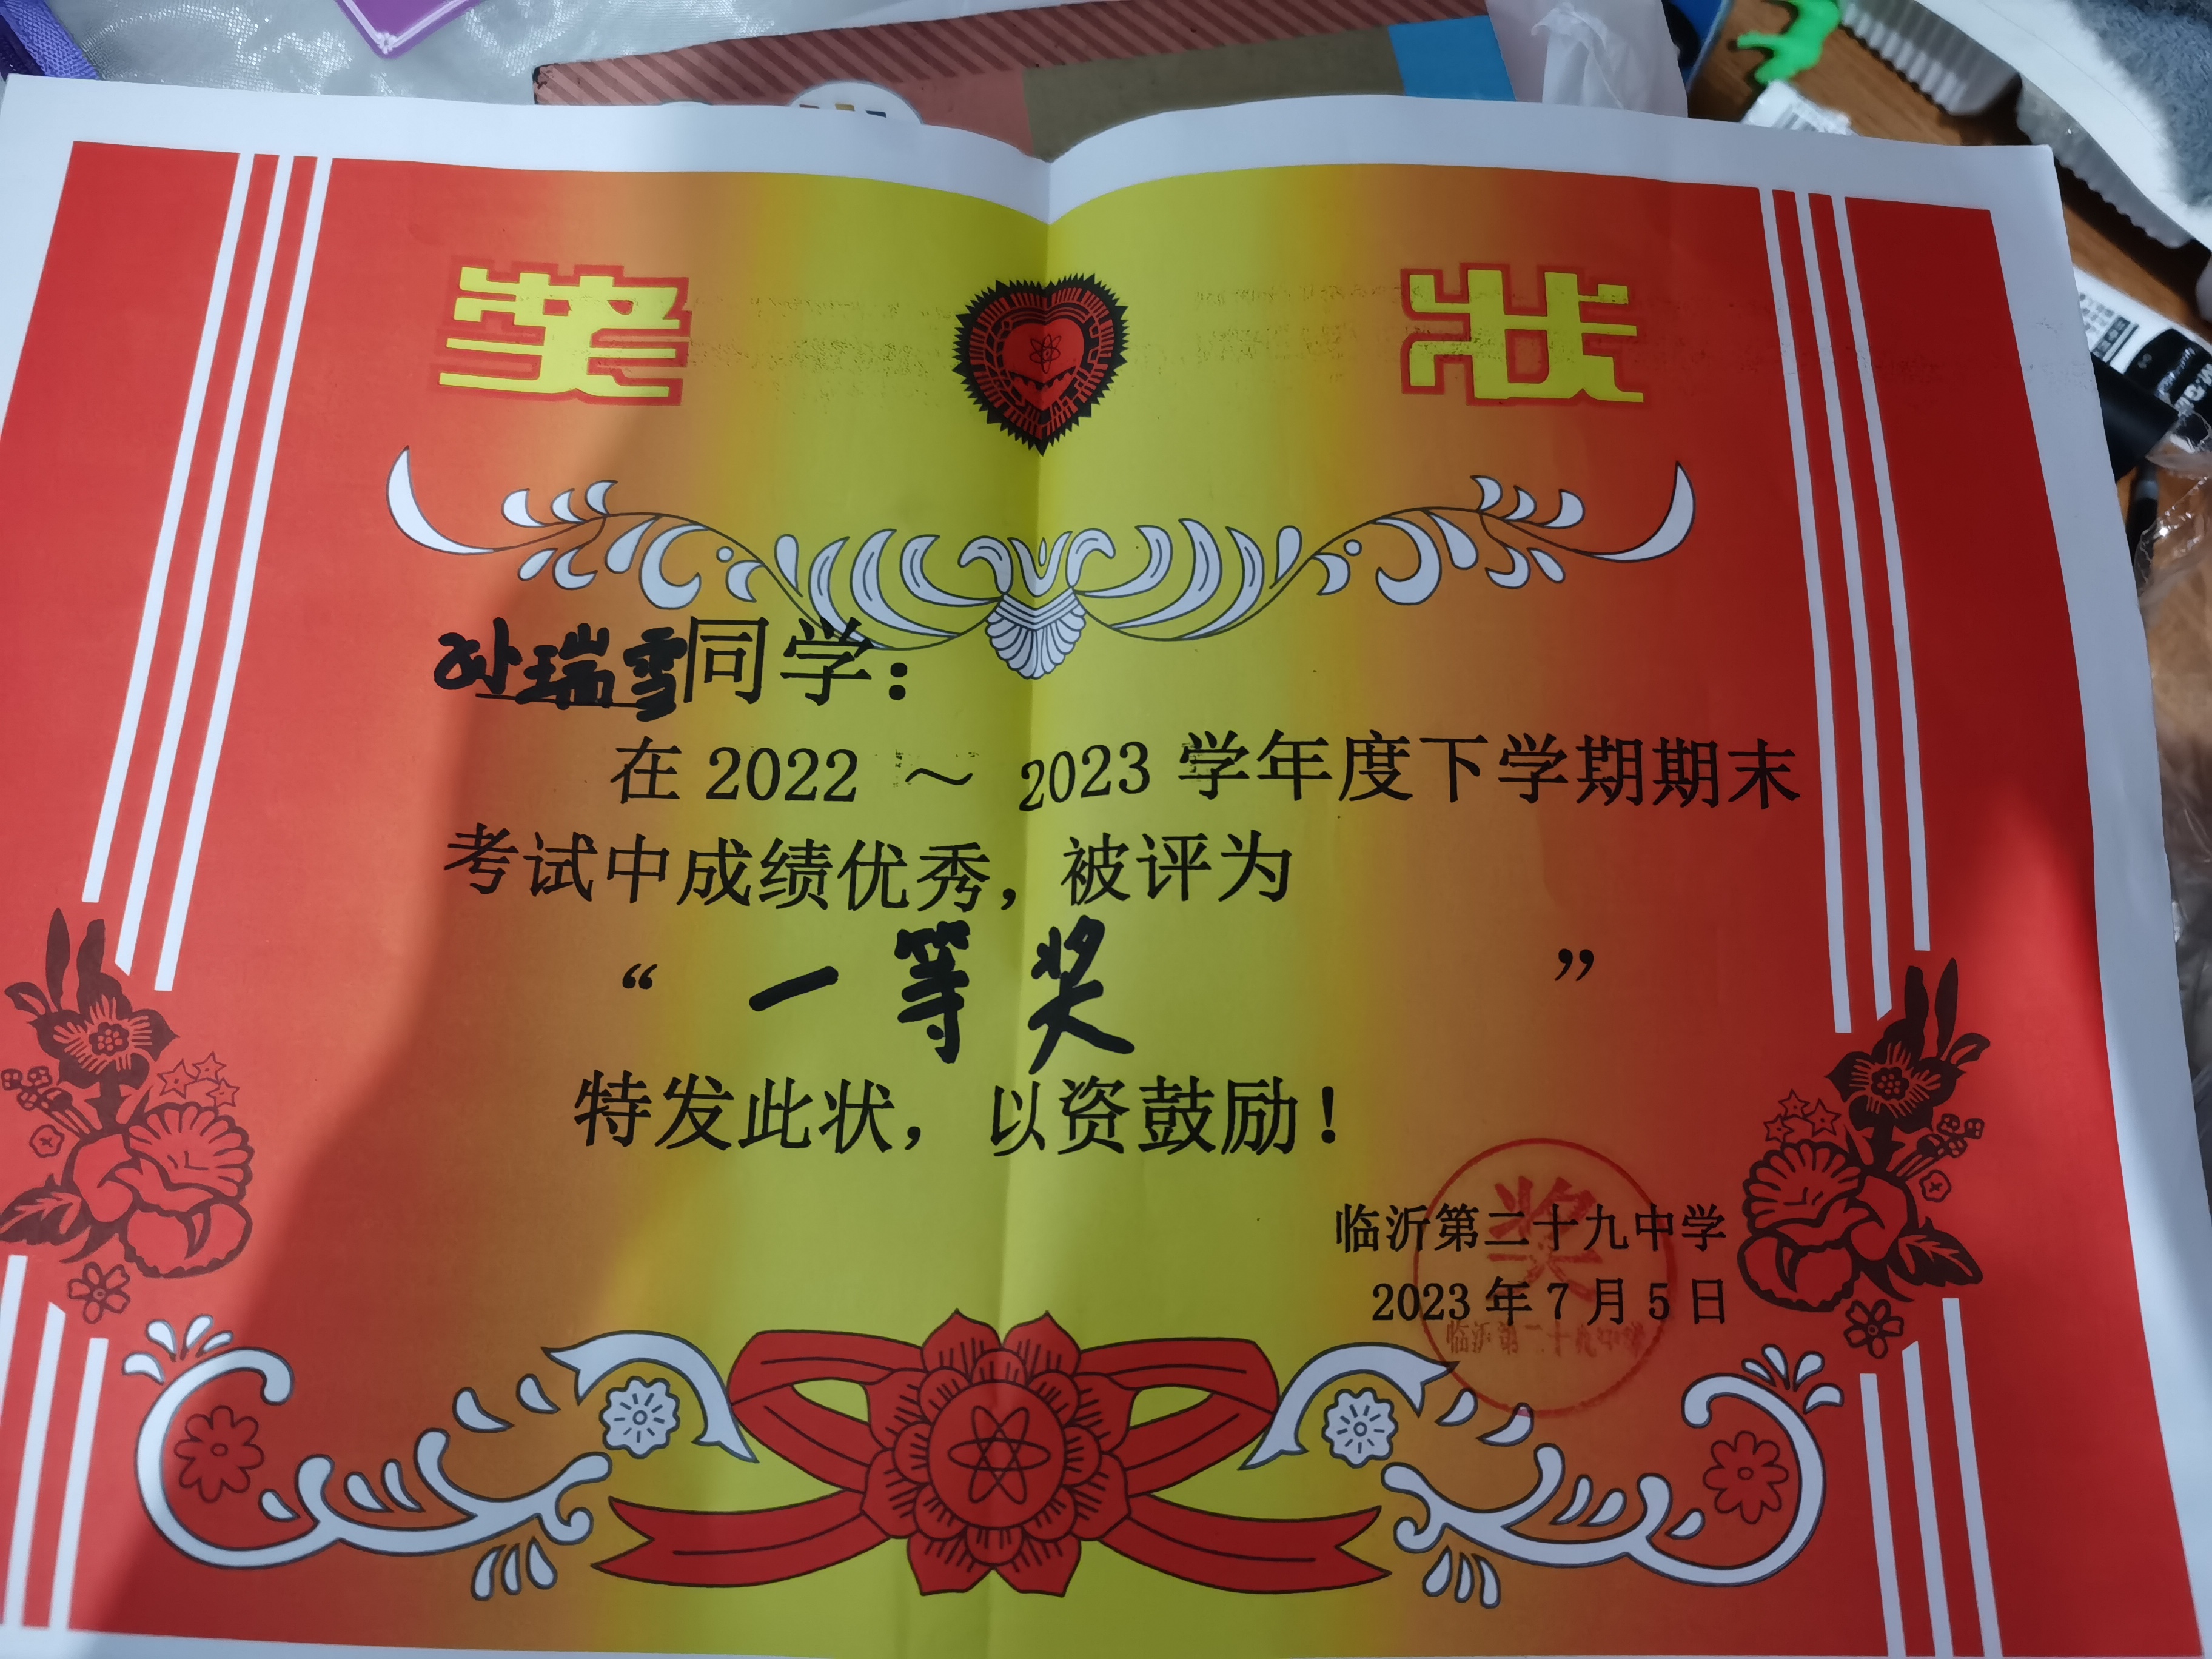 奖状
孙瑞雪同学：
在2022～2023学年度下学期期末
考试中成绩优秀，被评为
“一等奖”
特发此状，以资鼓励！
临沂第二十九中学
2023年7月5日
奖
临沂第二十九中学